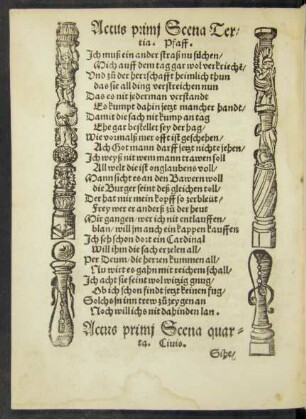 Actus primj Scena Ter⸗
tia. Pfaff.
Jch muß ein ander straß nu süchen/
Mich auff dem tag gar wol verkriechē/
Vnd zů der herrschafft heimlich thun
das sie all ding verstreichen nun
Das es nit jederman verstande
Es kumpt dahin jetzt mancher handt/
Damit die sach nit kump an tag
Ehe gar bestellet sey der hag/
Wie vormalß mer offt ist geschehen/
Ach Got mann darff jetzt nichte jehen/
Jch weyß nit wem mann trawen soll
All welt die ist onglaubens voll/
Mann sicht es an den Bawern woll
die Burger seint deß gleichen toll/
Der hat mir mein kopff so zerbleüt/
Frey wer er anderß zů der heut
Mir gangen/ wer ich nit entlauffen/
blan/ will jm auch ein kappen kauffen
Jch seh schon dort ein Cardinal
Will ihm die sach erzelen all/
Per Deum/ die herren kummen all/
Nu wirt es gahn mit reichem schall/
Jch acht sie seint wol witzig gnug/
Ob ich schon findt jetzt keinen fug/
Solchs in inn trew zů zeygen an
Noch will ichs nit dahinden lan.
Actus primj Scena quar⸗
ta. Ciuis.